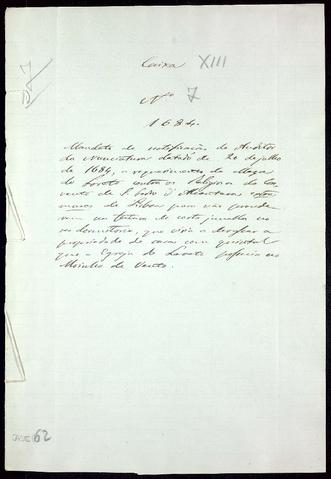 7
Caixa XIII
Nº 7
1684.
Mandato de notificação do Auditor
da Nunciatura datado de 20 de julho
de 1684, a requerimento da Meza
do Loreto contra os Religiosos do Con-
vento de S. Pedro d'Alcantara
de Lisboa para não procede-
rem na factura de certas janellas no
seo dormitorio, que vinha a devassar a
propriedade de casas com quintal
que a Egreja do Loreto possuia aos
Moinhos de Vento.
62